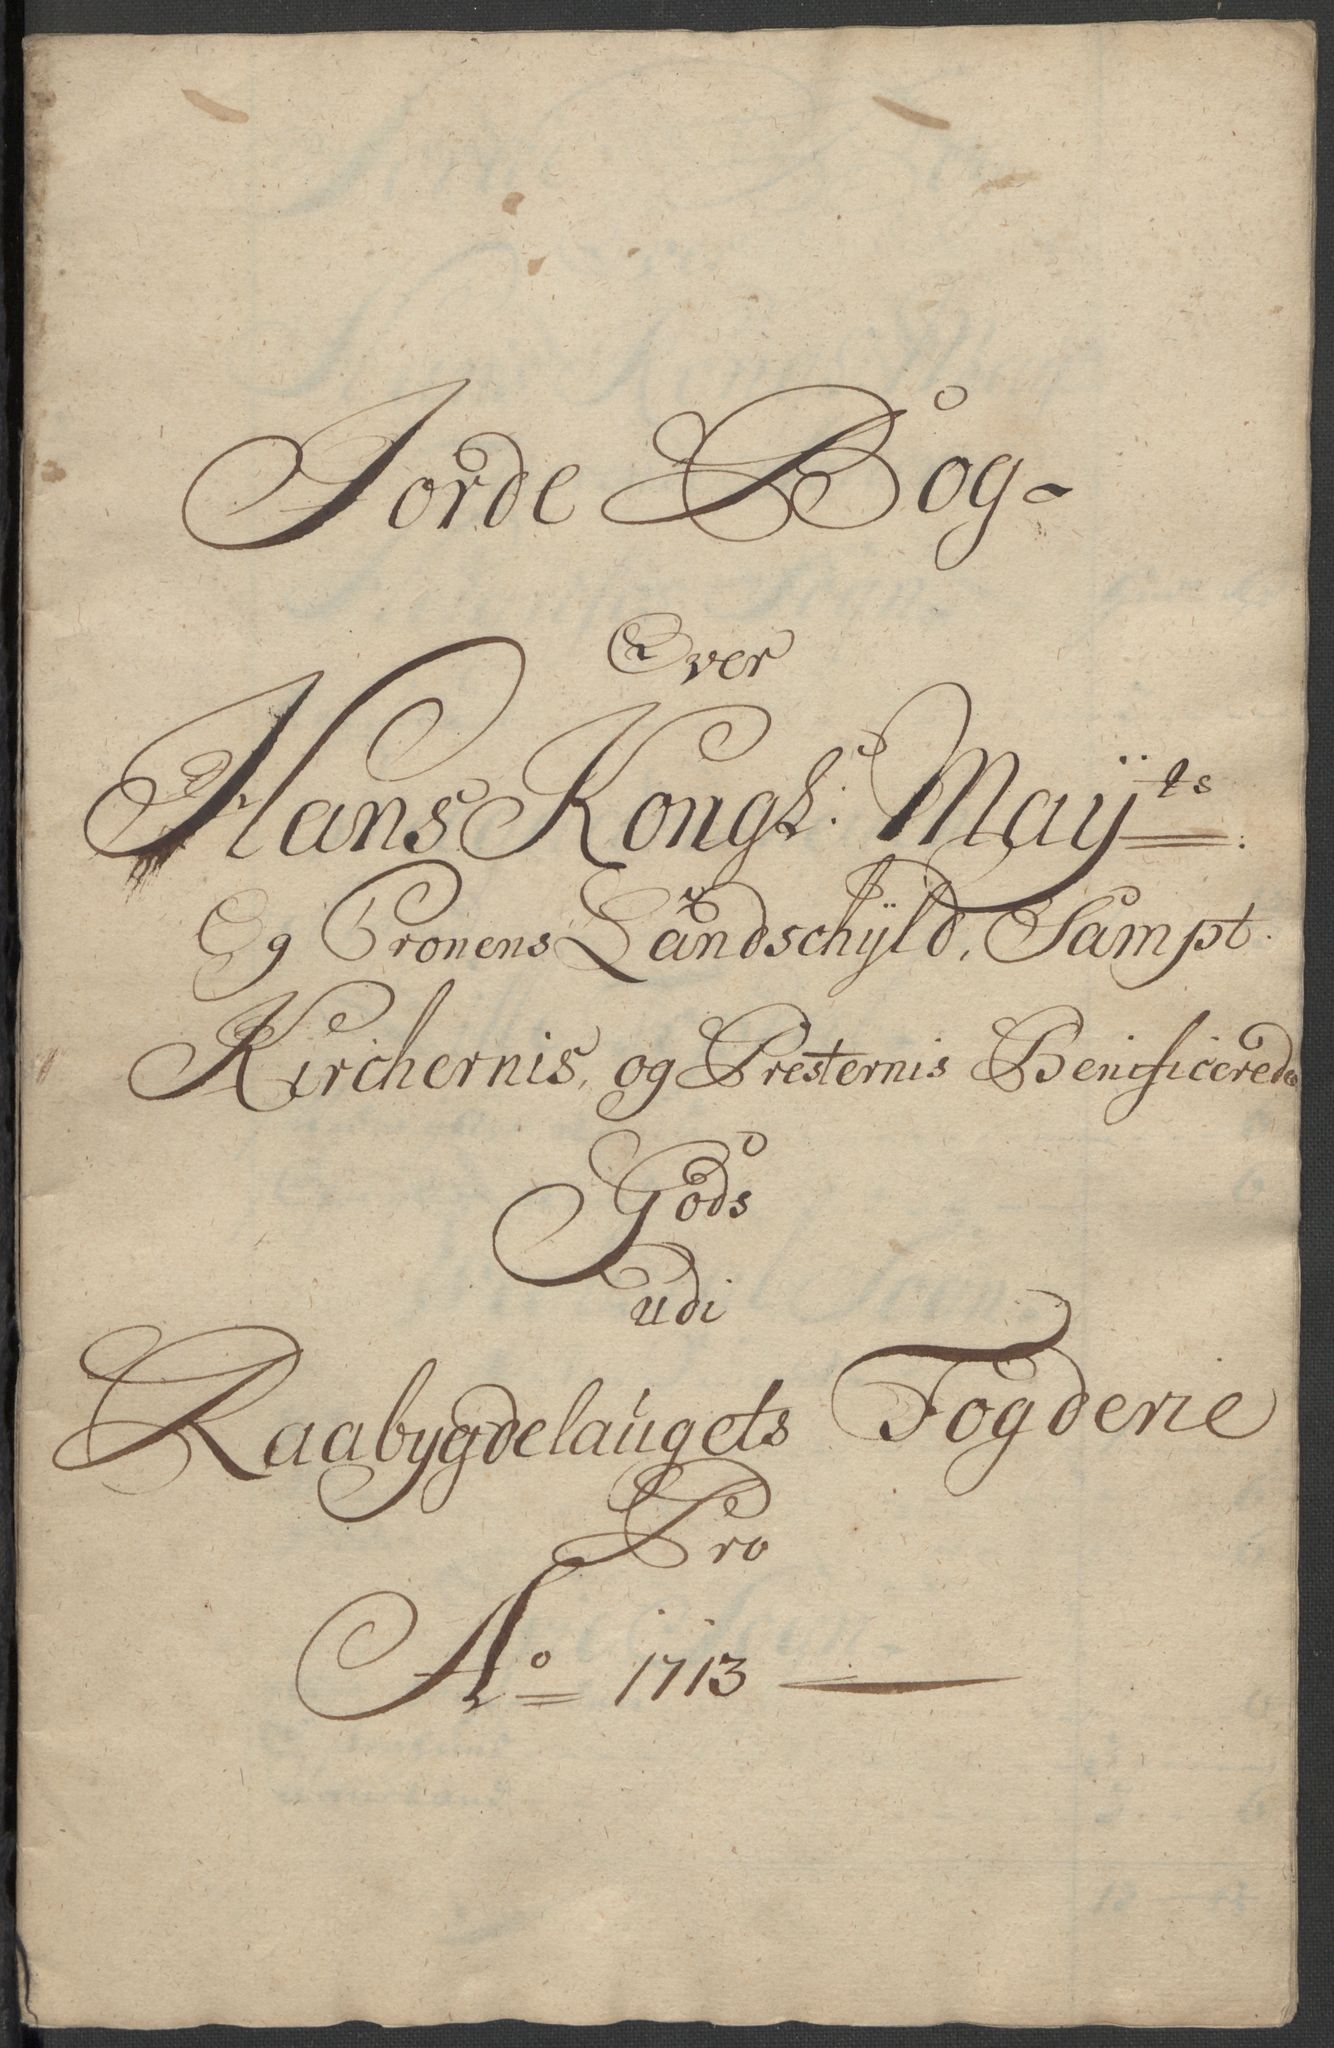 Jorde Bog-
Over
Hans Kongl: Mayts:
Og Cronens Landschÿld, Sampt
Kirchernis, og Presternis Benificerede
Gods
udi
Raabygdelaugets Fogderie
Pro
Ao 1713